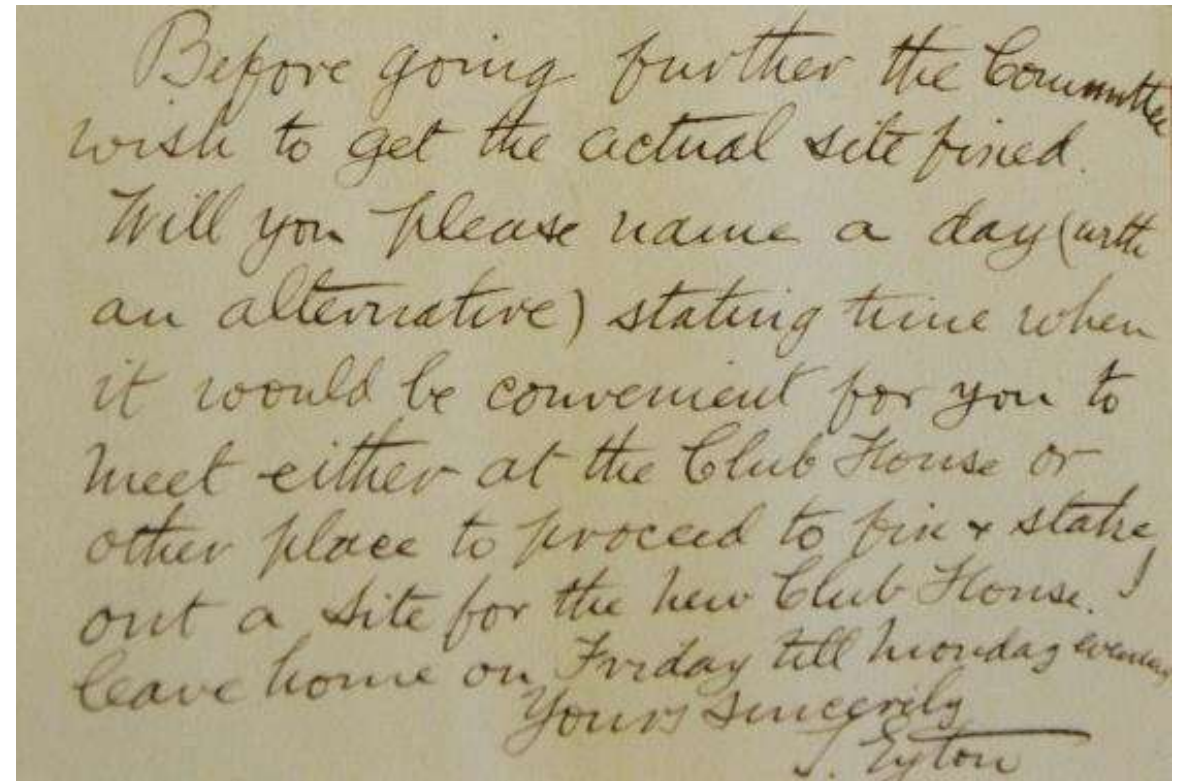 Before going further the Committee
wish to get the actual site fixed.
Will you please name a day (with
an alternative) stating time when
it would be convenient for you to
meet either at the Club House or
other place to proceed to fix & stake
out a site for the new Club House. I
leave home on Friday till Monday evening
Yours Sincerely
J. Eyton